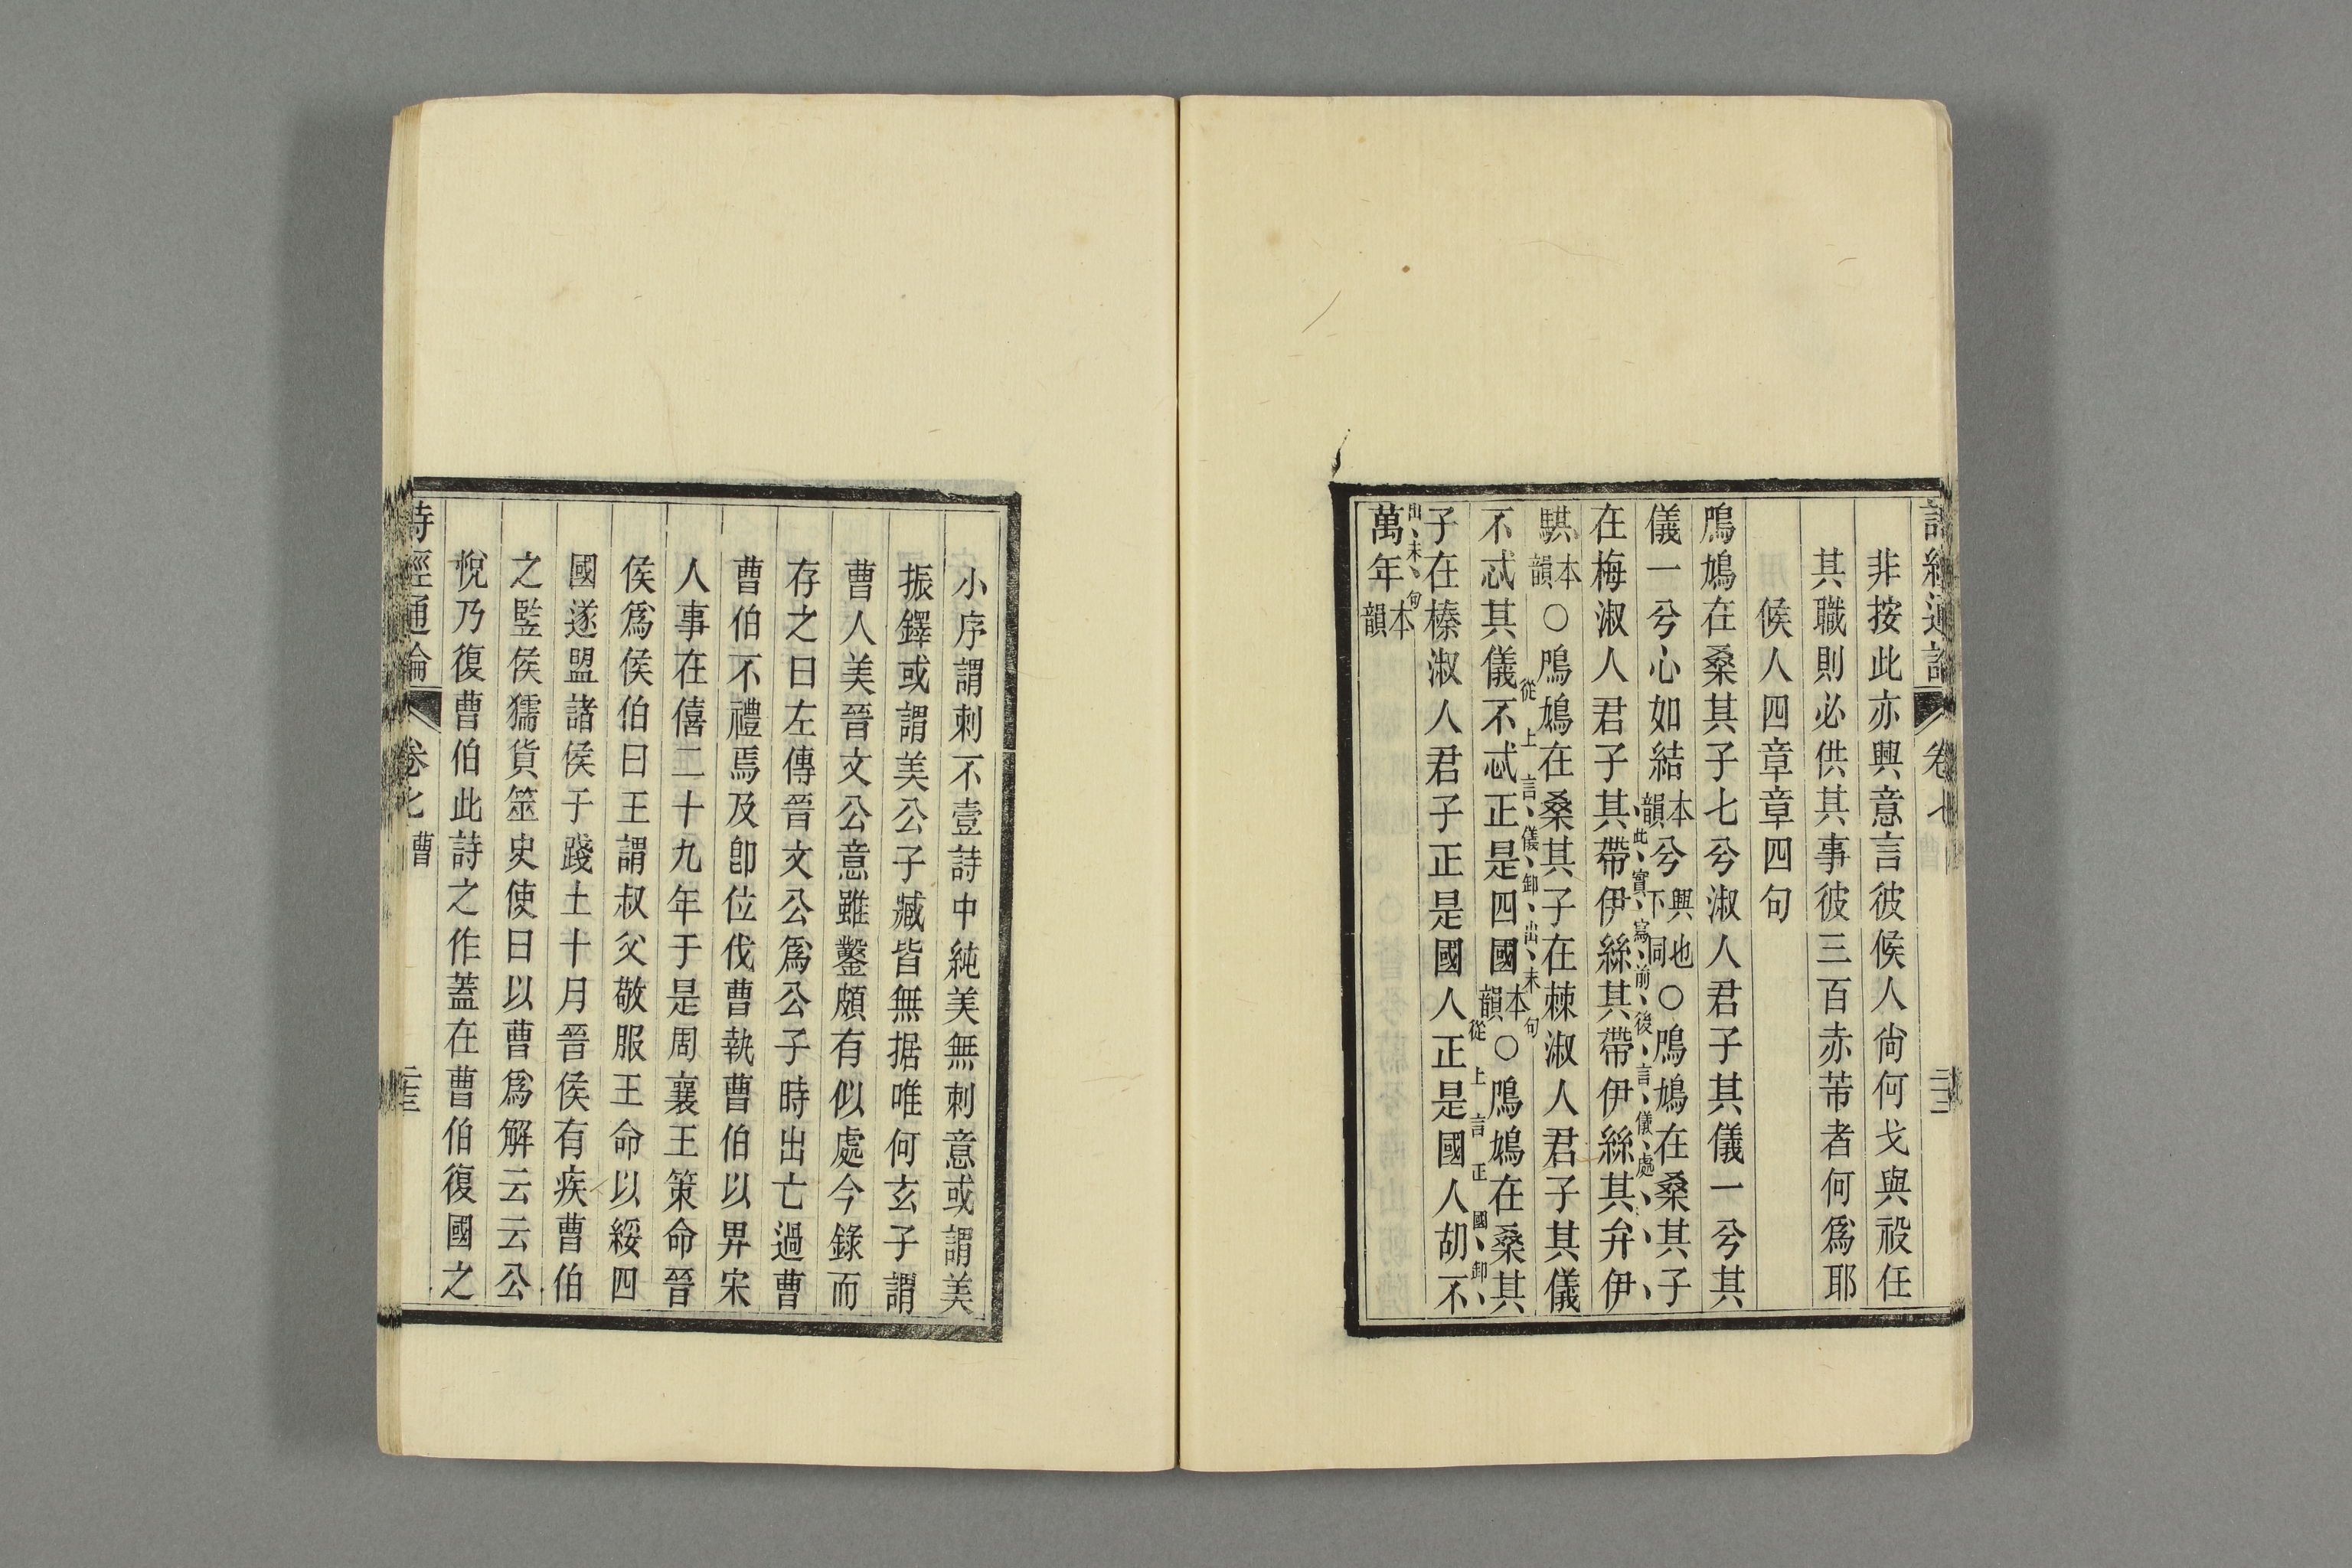 詩經通論 卷七
非按此亦興意言彼候人尙何戈與祋任
其職則必供其事彼三百赤芾者何爲耶
候人四章章四句
鳲鳩在桑其子七兮淑人君子其儀一兮其
儀一兮心如結本韻兮興也下同○鳲鳩在桑其子
此、實、寫、前、後、言、儀、處、、、
在梅淑人君子其帶伊絲其帶伊絲其弁伊
騏本韻○鳲鳩在桑其子在棘淑人君子其儀
從上言、儀、卸、出、末句
不忒其儀不忒正是四國本韻○鳲鳩在桑其
從上言正國、卸、、
子在榛淑人君子正是國人正是國人胡不
出、末、句
萬年本韻
小序謂刺不壹詩中純美無刺意或謂美
振鐸或謂美公子臧皆無据唯何玄子謂
曹人美晉文公意雖鑿頗有似處今錄而
存之曰左傳晉文公爲公子時出亡過曹
曹伯不禮焉及卽位伐曹執曹伯以畀宋
人事在僖二十九年于是周襄王策命晉
侯爲侯伯曰王謂叔父敬服王命以綏四
國遂盟諸侯于踐土十月晉侯有疾曹伯
之豎侯獳貨筮史使曰以曹爲解云云公
悅乃復曹伯此詩之作蓋在曹伯復國之
詩經通論 卷七 曹 二十三